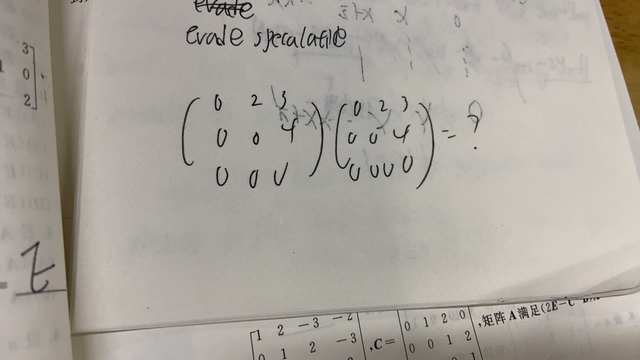 evade
evade speculatile
0 2 3 0 2 3
0 0 4 0 0 4 = ?
0 0 0 0 0 0 0
3
0
2
1 2 -3 -2
0 1 2 -3
,C=
0 1 2 0
0 0 1 2
,矩阵A满足(2E-C